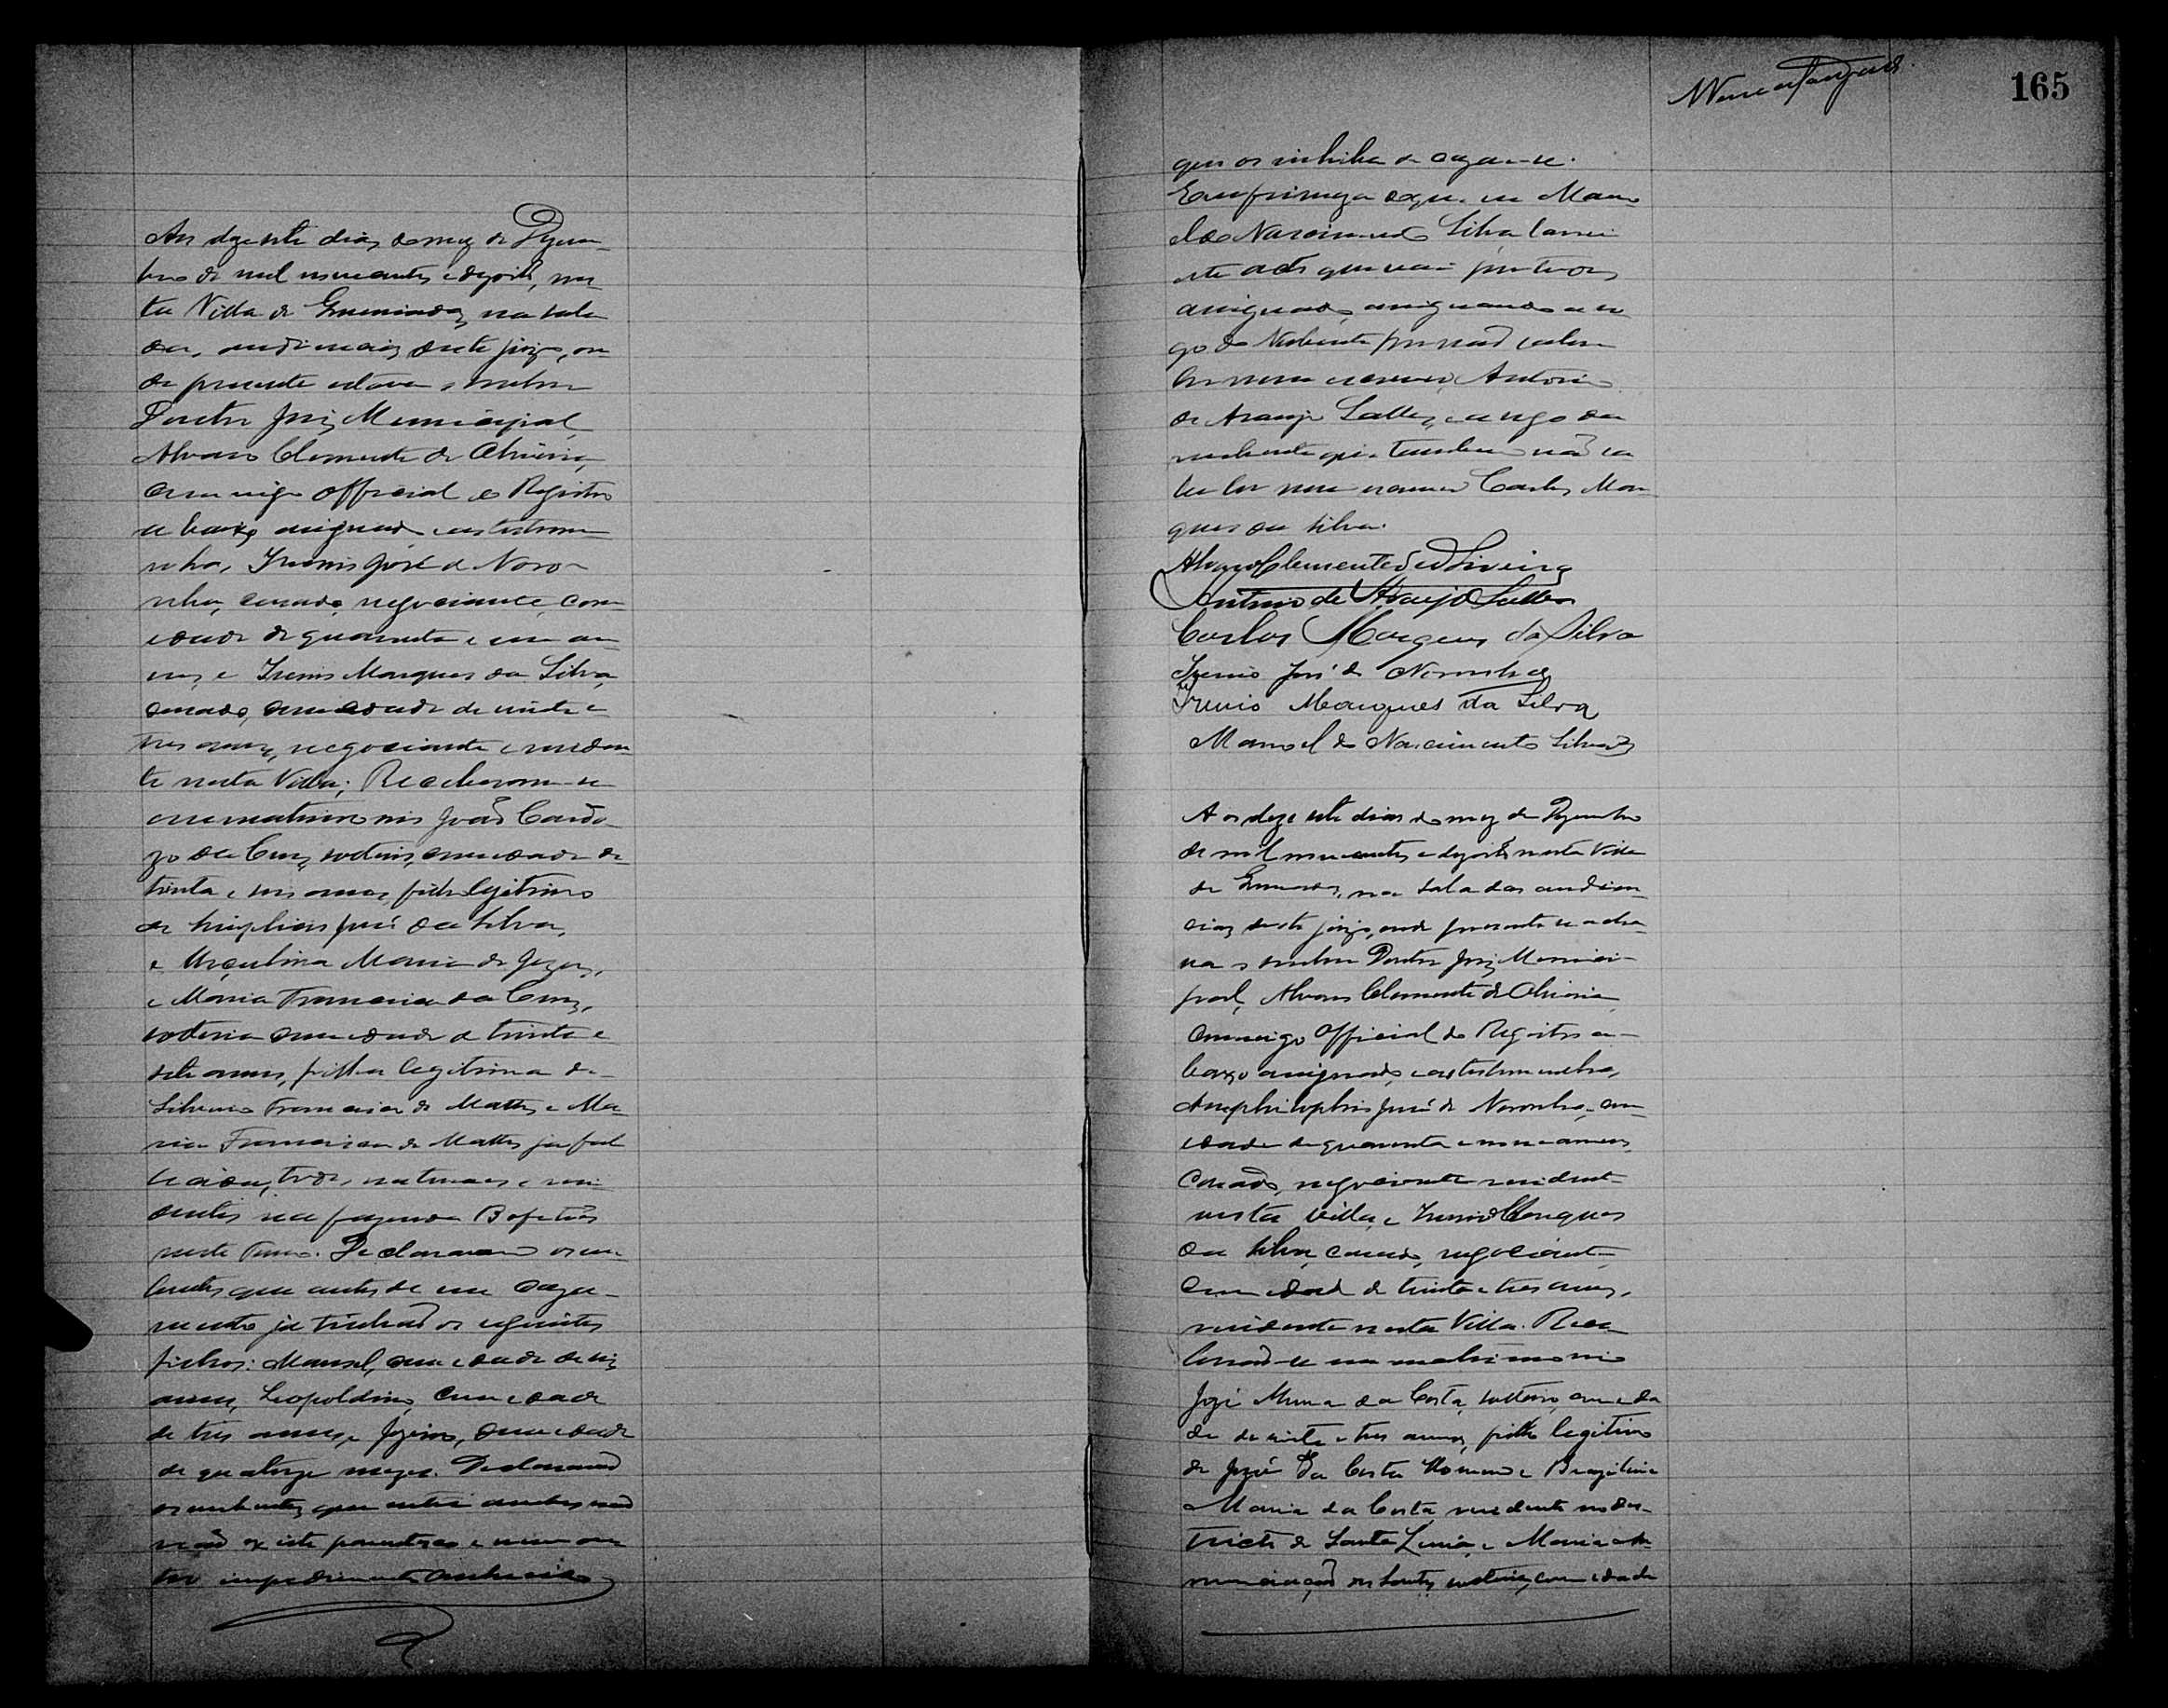 Aos dezesete dias do mez de Dezem-
bro de mil novecentos e dezoito, nes-
ta Villa de Gramiados, na sala
das audiencias deste juizo, on
de presente estava o senhor
Doutor Juiz Municipal
Alvaro Clemente de Oliveira,
comigo official do Registro
abaixo assignado e as testemu
nhas, Irenio José de Noro-
nha, casado, negociante, com
edade de quarenta e um an
nos, e Irenio Marques da Silva,
casado, com edade de vinte e
tres annos, negociante e residen
te nesta Villa; Receberam-se
em matrimonio João Cardo
zo da Cruz, solteiro, com edade de
trinta e seis annos, filho legitimo
de José da Silva,
e Maria de Jezus,
e Maria Francisca da Cruz,
solteira com edade de trinta e
sete annos, filha legitima de
Silverio Francisco de Mattos e Ma
ria Francisca de Mattos já fal
lecida, todos naturaes e resi
dentes na fazenda
neste Termo. Declararam os nu
bentes que antes de seu caza-
mento já tinhão os seguintes
filhos: Manoel, com edade de seis
annos, Leopoldino, com edade
de tres annos, e Jozino, com edade
de quatorze mezes. Declararão
os nubentes que entre ambos não
não existe parentesco e nem ou
tro impedimento conhecido
165
que os inhiba de cazar-se.
E em firmeza do que eu Mano
el do Nascimento Silva lavrei
este acto que vai por todos
assignado, assignando a ro
go do Nubente por não saber
ler nem escrever, Antonio
de Araujo Salles, e a rogo da
nubente que tambem não sa
be ler nem escrever Carlos Mar
ques da Silva.
Alvaro Clemente de Oliveira
Antonio de Araujo Salles
Carlos Marques da Silva
Irenio José de Noronha
Irenio Marques da Silva
Manoel do Nascimento Silva
Aos dezesete dias do mez de Dezembro
de mil novecentos e dezoito nesta Villa
de Gramiados, na sala das audien
cias deste juizo, onde presente se acha
va o senhor Doutor Juiz Munici-
pal, Alvaro Clemente de Oliveira
commigo Official do Registro a-
baixo assignado, e as testemunhas,
Amphilophio José de Noronha, com
edade de quarenta e nove annos,
casado, negociante residente
nesta Villa, e Irenio Marques
da Silva, casado, negociante
com edade de trinta e tres annos,
residente nesta Villa. Rece
berão-se em matrimonio
José da Costa, solteiro, com eda
de de vinte e tres annos, filho legitimo
de José da Costa e Brazilina
Maria da Costa, residente no des-
tricto de Santa Luzia, e Maria An
nunciação dos Santos, solteira, com edade